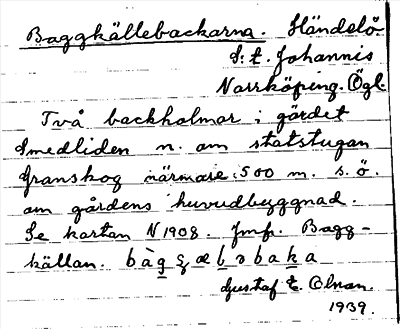 Baggkällebackarna. Händelö
S:t. Johannis
Norrköping. Ögl.
Två backholmar i gärdet
Smedliden n. om statstugan
Granskog närmare 500 m. s. ö.
om gårdens huvudbyggnad.
Se kartan N 1908. Jmf. Bagg-
källan. bàgçæləbaka
Gustaf E. Olson.
1939.